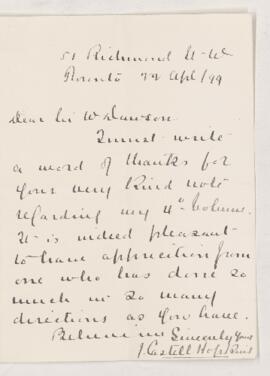 51 Richmond St. W.
Toronto 22 Apl/99
Dear Sir Wm Dawson
I must write
a word of thanks for
your very kind note
regarding my 4th Volume.
It is indeed pleasant
to have appreciation from
one who has done so
much in so many
directions as you have.
Believe me
Sincerely yours
J. Castell Hopkins